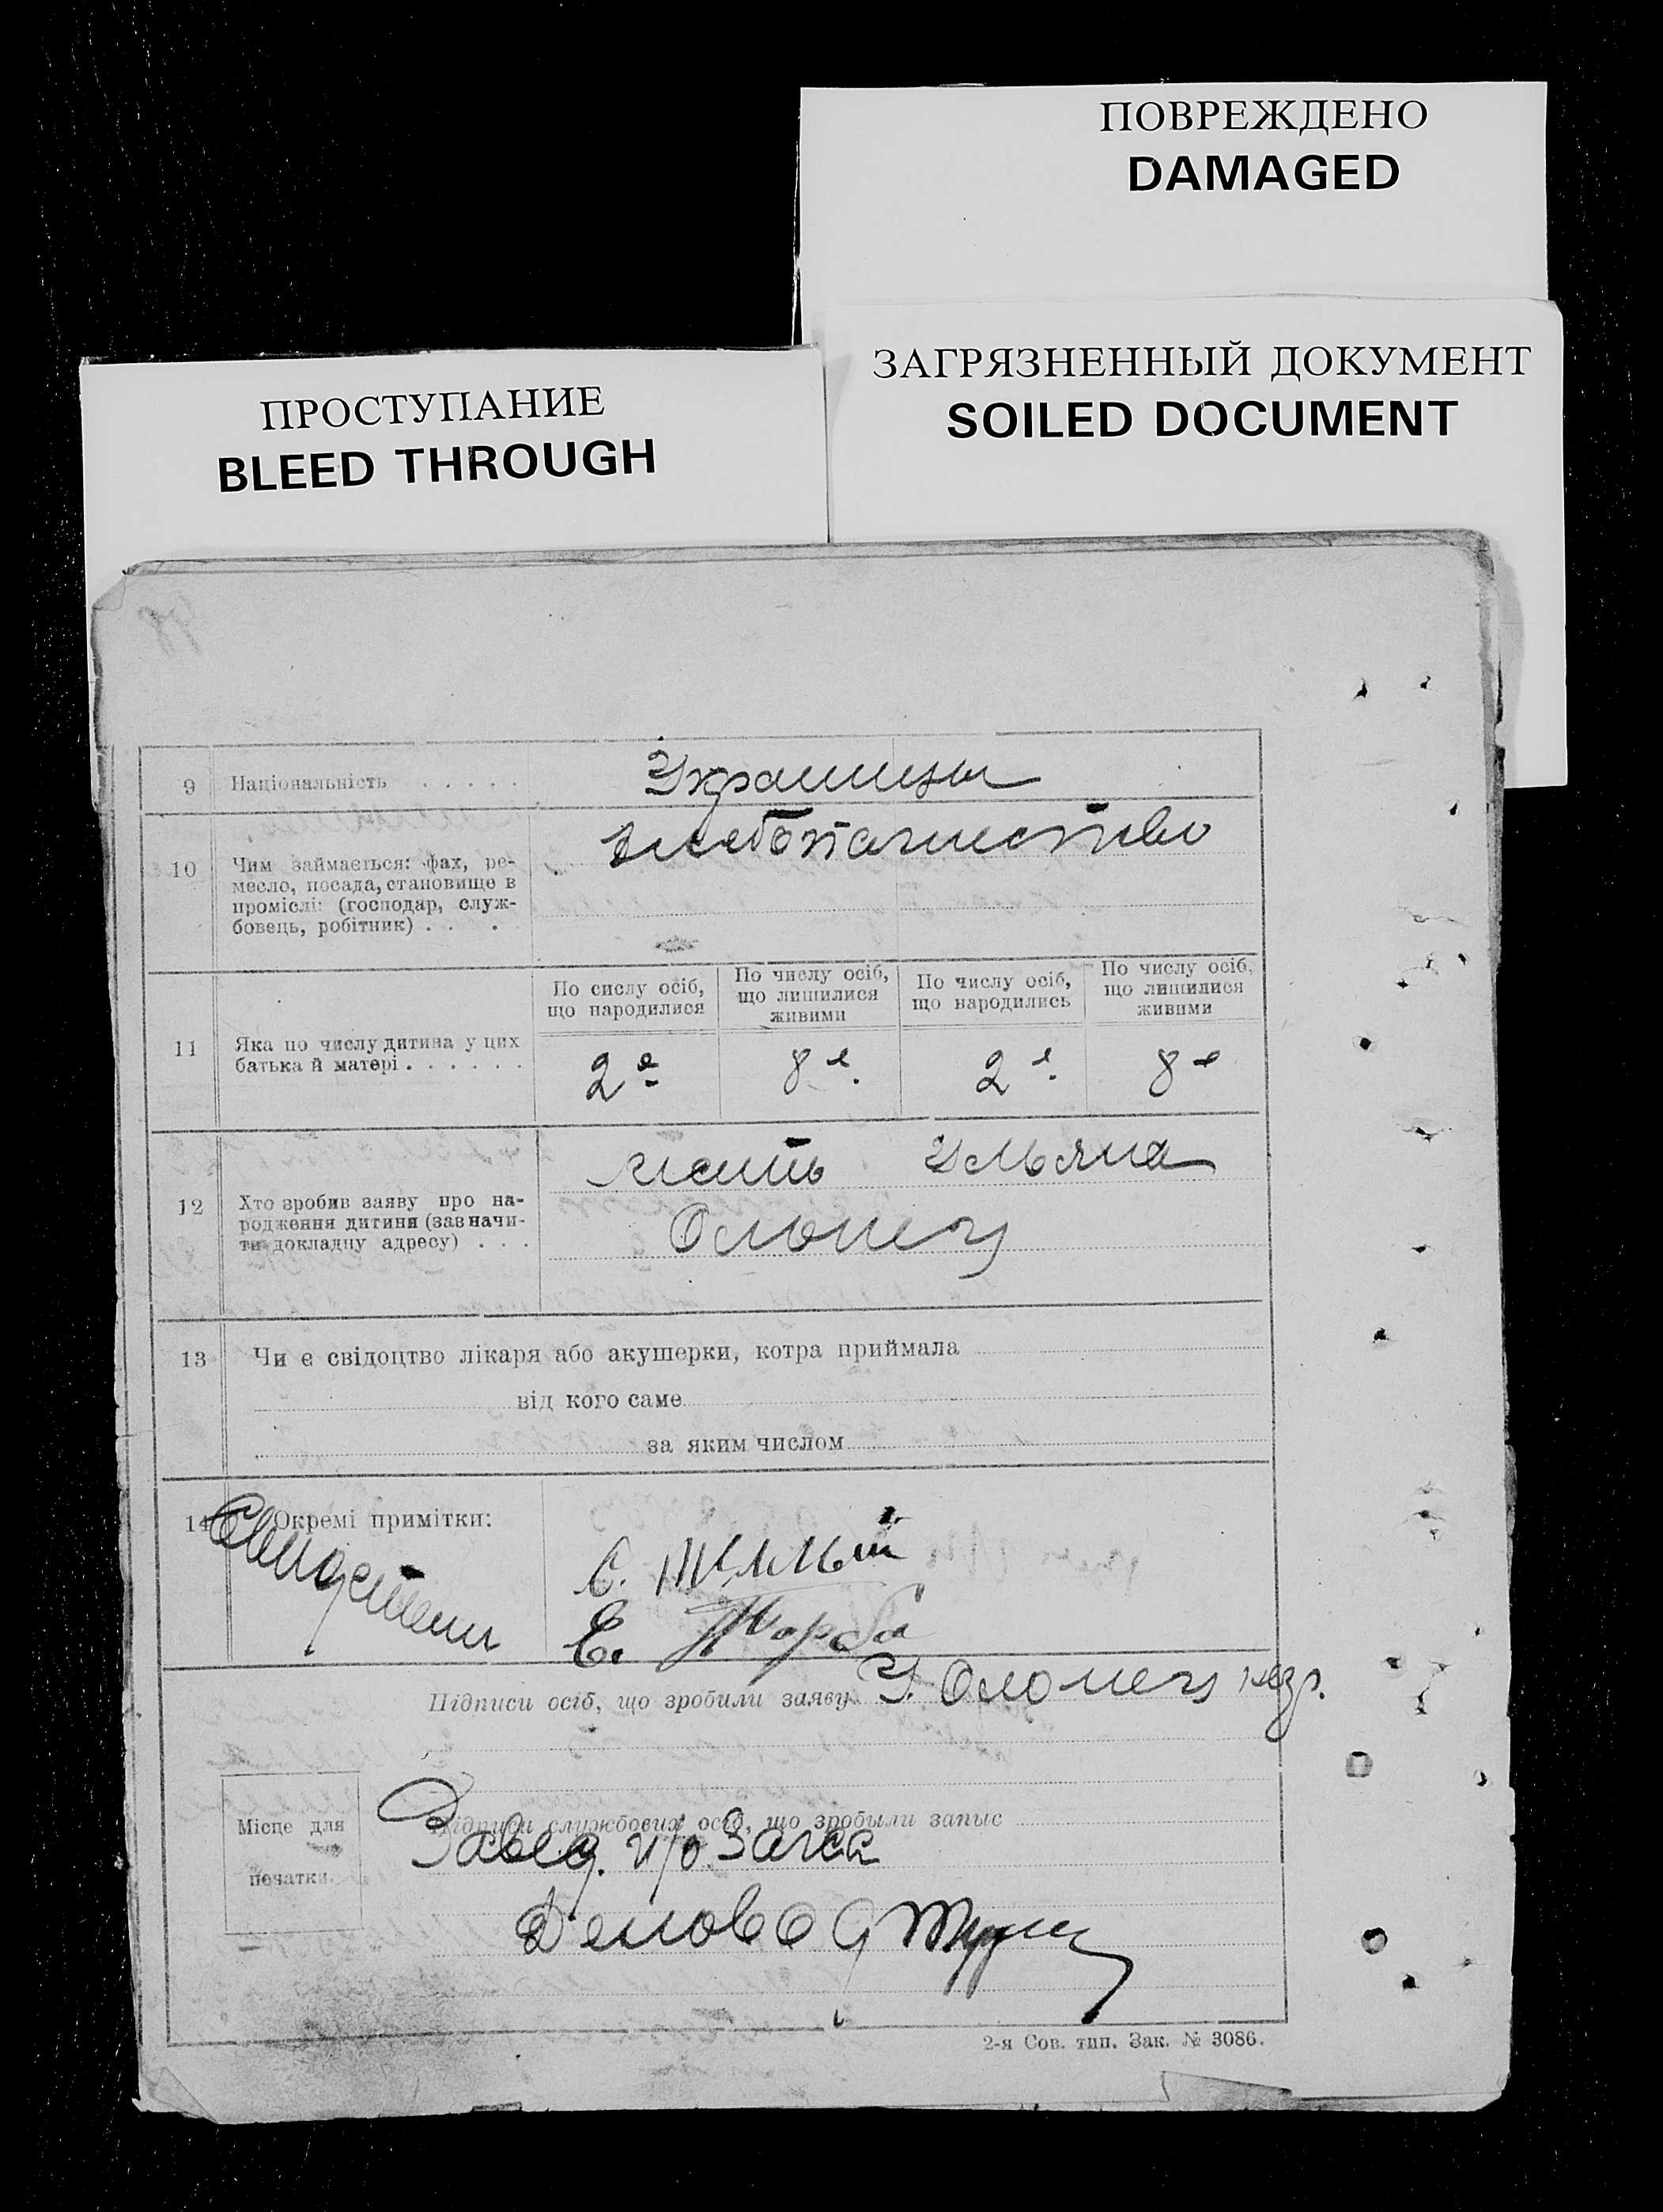 ПОВРЕЖДЕНО
DAMAGED
ЗАГРЯЗНЕННЫЙ ДОКУМЕНТ
SOILED DOCUMENT
ПРОСТУПАНИЕ
BLEED THROUGH
9 Національність . . . . . Украинцы
10 Чим займається: фах, ре-
месло, посада, становище в
проміслі: (господар, служ-
бовець, робітник) . . .
хлебопашество
11 Яка по числу дитина у цих
батька й матері . . . . . .
По сислу осіб,
що народилися
По числу осіб,
що лишилися
живими
По числу осіб,
що народились
По числу осіб,
що лишилися
живими
2е 8е. 2е. 8е
12 Хто зробив заяву про на-
родження дитини (зазначи-
ти докладну адресу) . . .
мать Ульяна
13 Чи є свідоцтво лікаря або акушерки, котра приймала
від кого саме
за яким числом
14 Окремі примітки:
Свидетели
С.
Е. Торба
Підписи осіб, що зробили заяву У. негр.
Місце для
печатки
Підписи службових осіб, що зробыли запыс
Завед. п/о Загса
Деловод
2-я Сов. тип. Зак. № 3086.